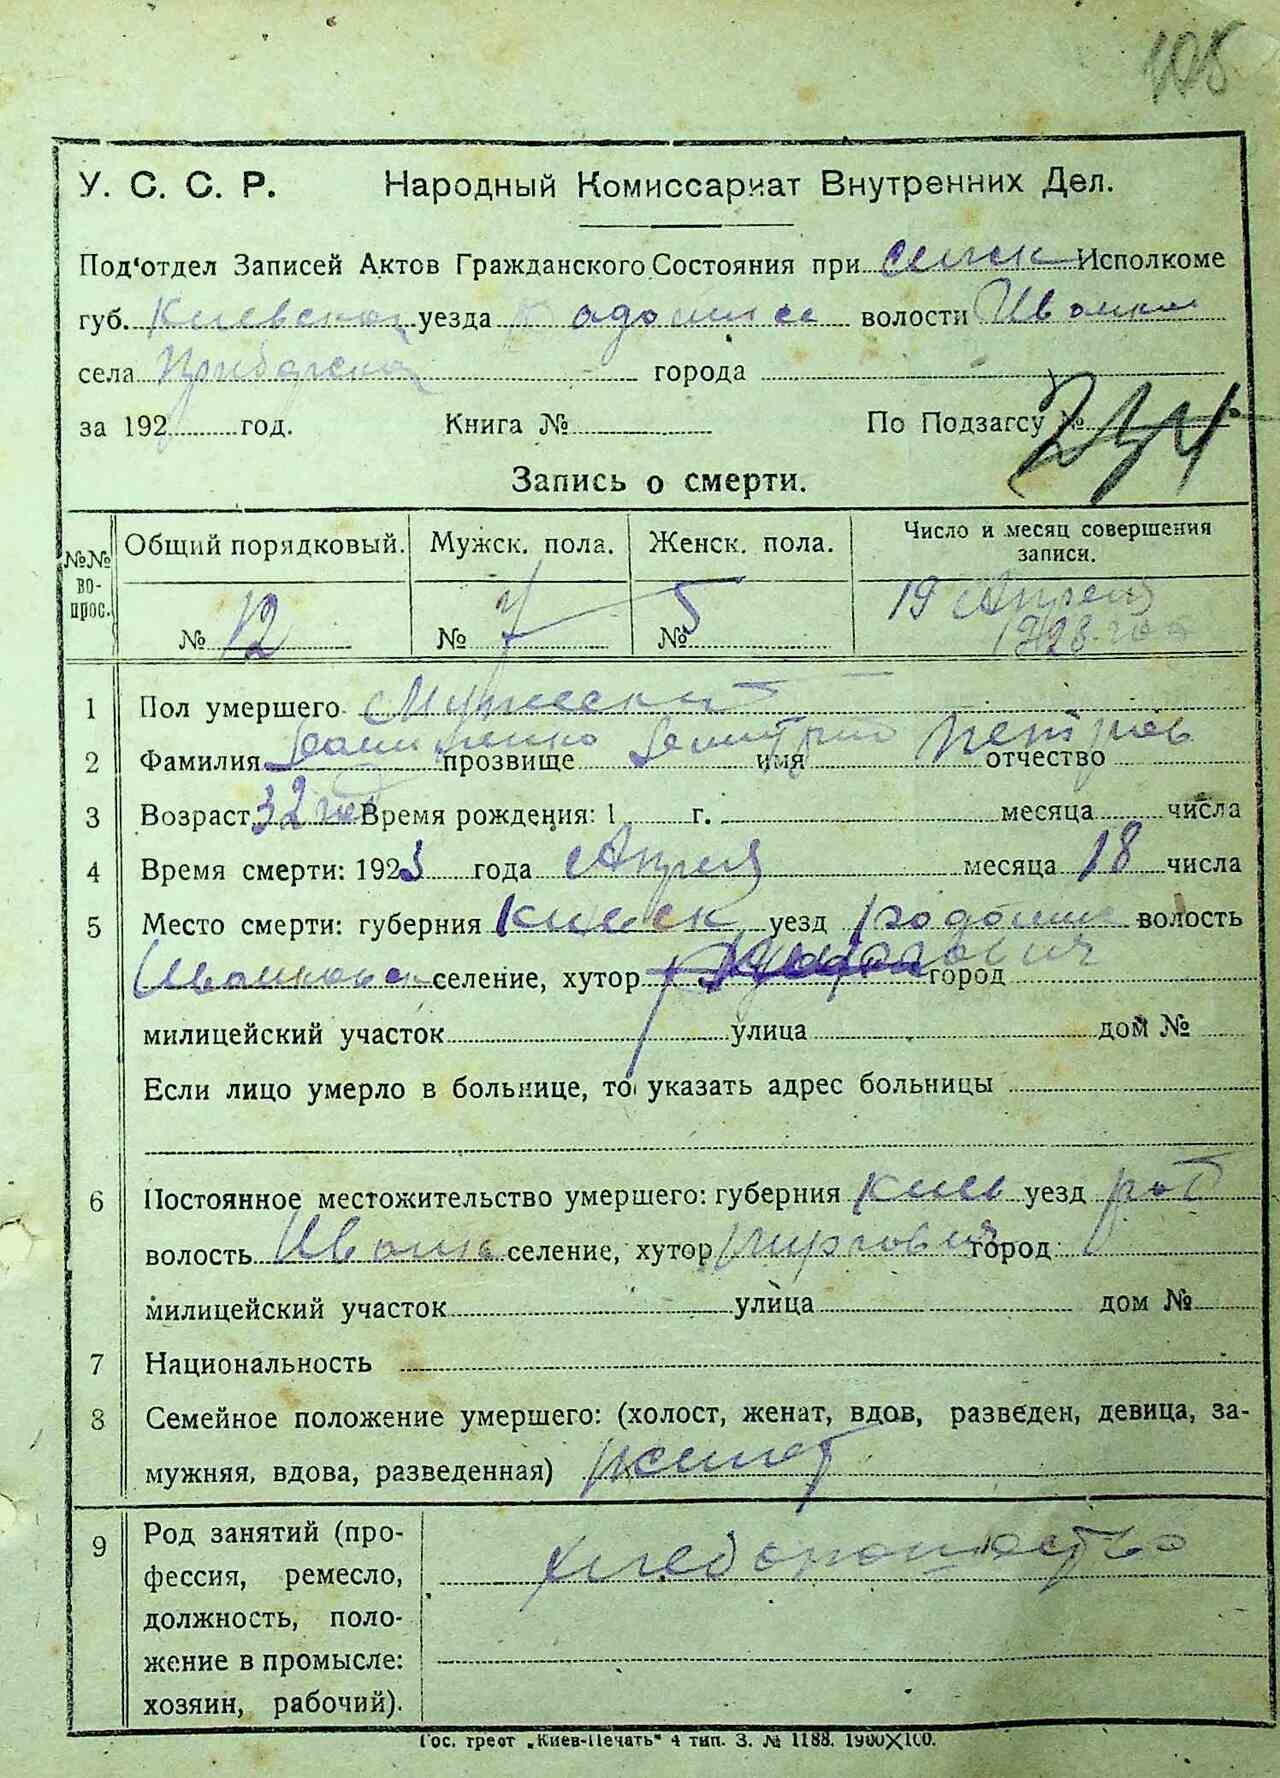 108
У. С. С. Р. Народный Комиссариат Внутренних Дел.
Под'отдел Записей Актов Гражданского Состояния при сельск Исполкоме
губ. Киевской уезда Радомысл волости Иванков
села города
за 192 год. Книга № По Подзагсу №
Запись о смерти.
№№ вопрос. Общий порядковый. Мужск. пола. Женск. пола. Число и месяц совершения записи.
№ 12 № 7 № 5 19 Апреля
1923 года
1 Пол умершего Мужеский
2 Фамилия прозвище Дмитрий имя Петров отчество
3 Возраст 32 год Время рождения: 1 г. месяца числа
4 Время смерти: 1923 года Апреля месяца 18 числа
5 Место смерти: губерния Киевск уезд Радомысл волость
Иванковск селение, хутор город
милицейский участок улица дом №
Если лицо умерло в больнице, то указать адрес больницы
6 Постоянное местожительство умершего: губерния Киев уезд рад
волость Иванк селение, хутор город
милицейский участок улица дом №
7 Национальность
8 Семейное положение умершего: (холост, женат, вдов, разведен, девица, за-
мужняя, вдова, разведенная) женат
9 Род занятий (про-
фессия, ремесло, хлебопашество
должность, поло-
жение в промысле:
хозяин, рабочий).
Гос. трест „Киев-Печать“ 4 тип. З. № 1188. 1900X100.